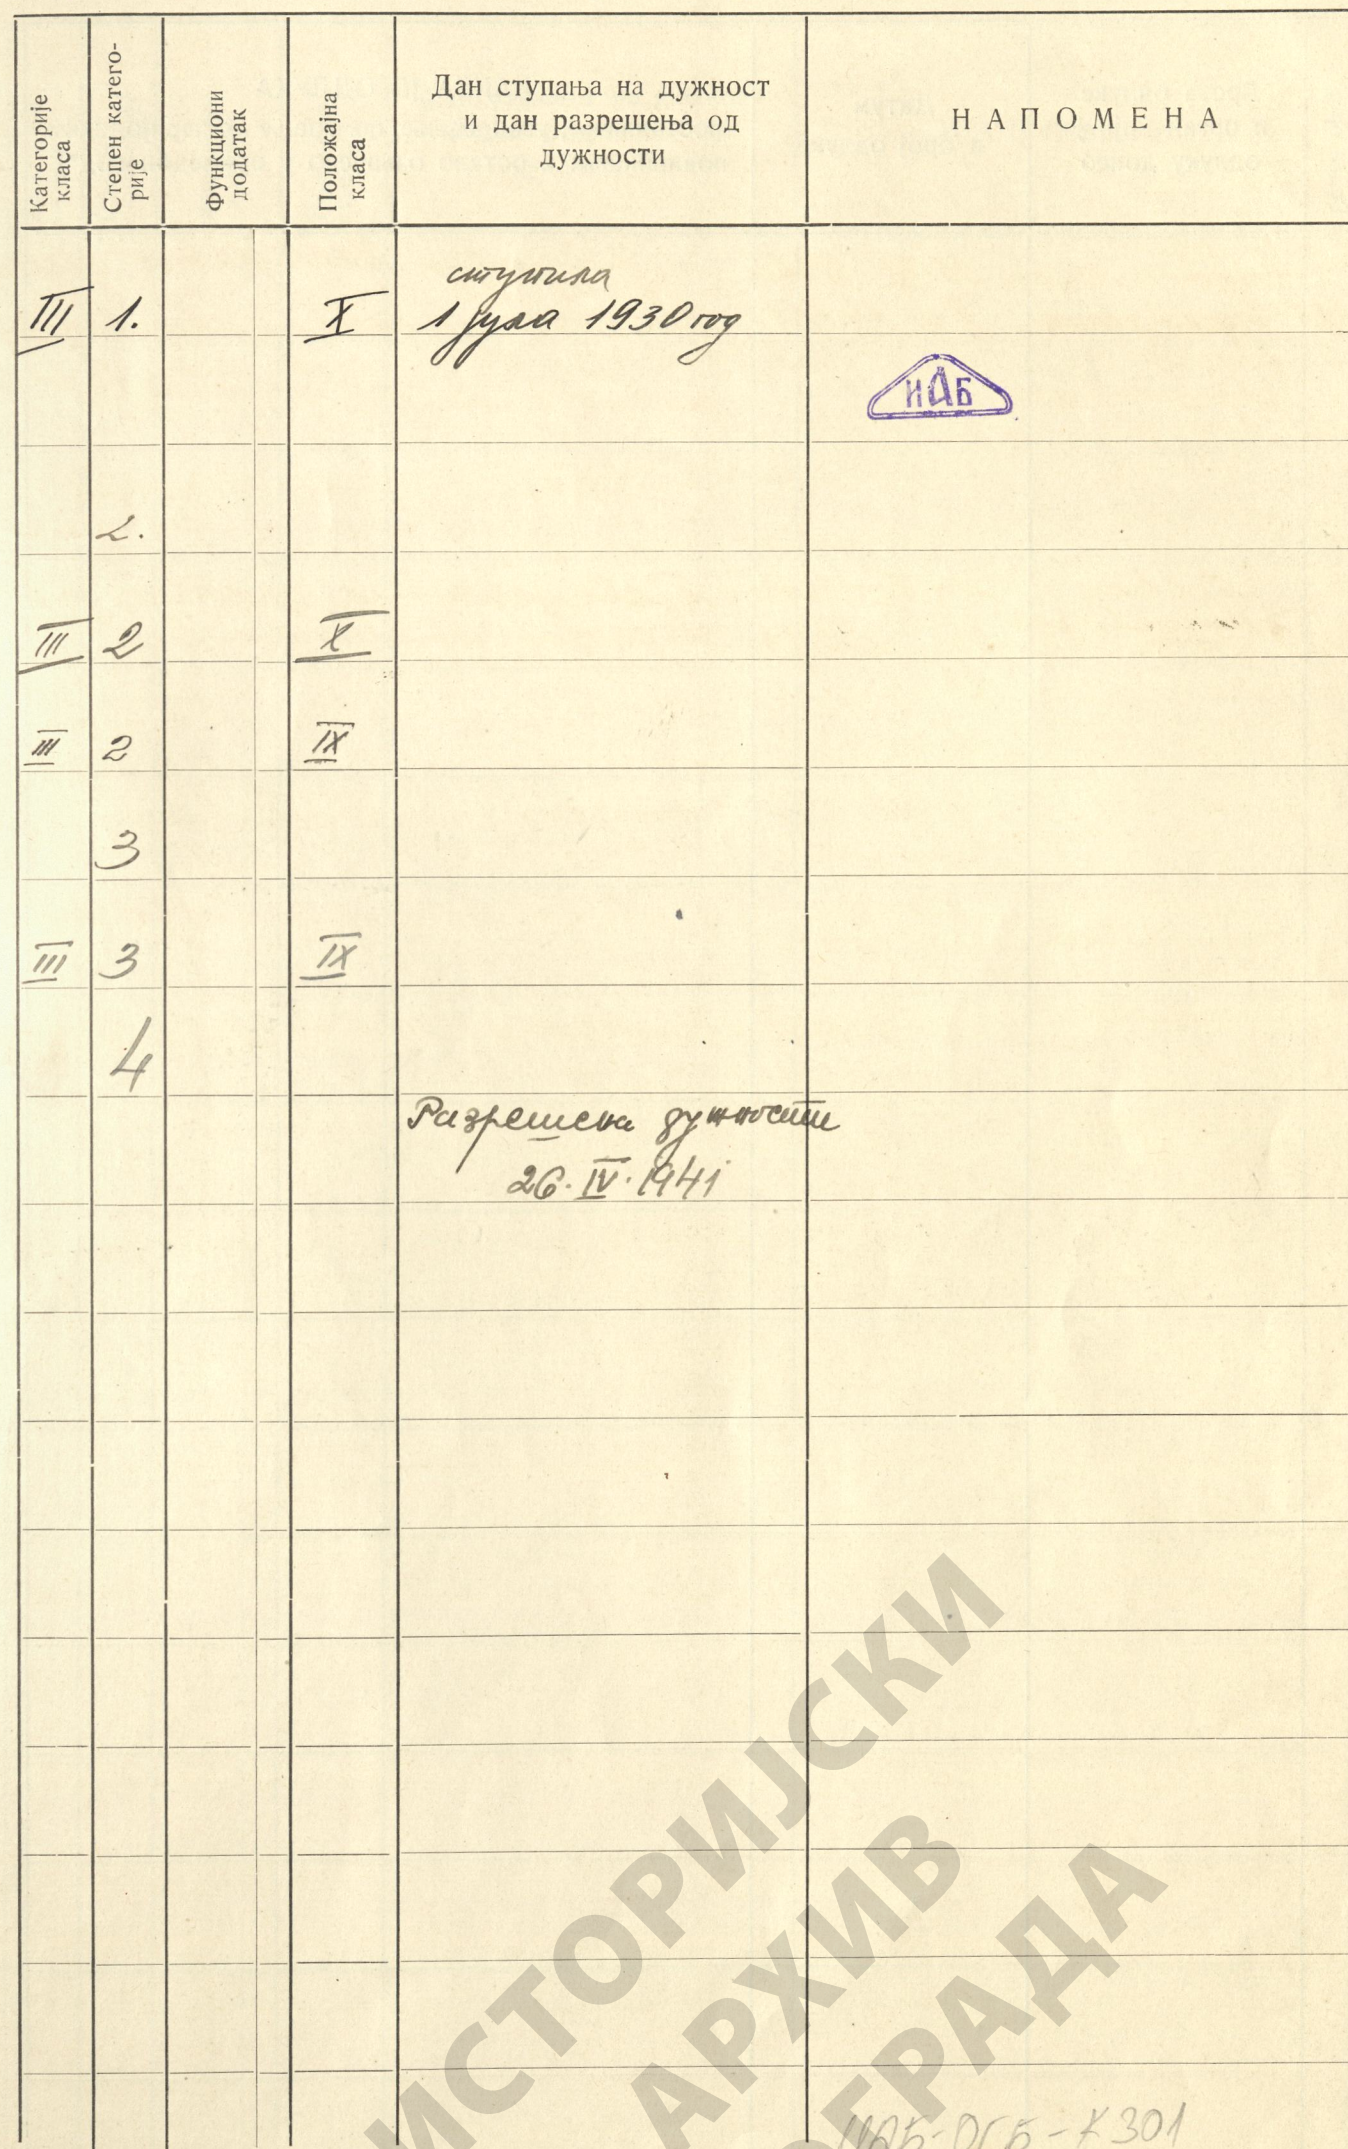 Категорије класа
Степен катего-
рије
Функциони додатак
Положајна класа
Дан ступања на дужност
и дан разрешења од
дужности
НАПОМЕНА
ступила
III 1. X 1 јула 1930 год
ИАБ
2.
III 2 X
III 2 IX
3
III 3 IX
4
Разрешена дужности
26. IV. 1941
ИСТОРИЈСКИ
АРХИВ
ОГРАДА
ИАБ-ОГБ-К 301